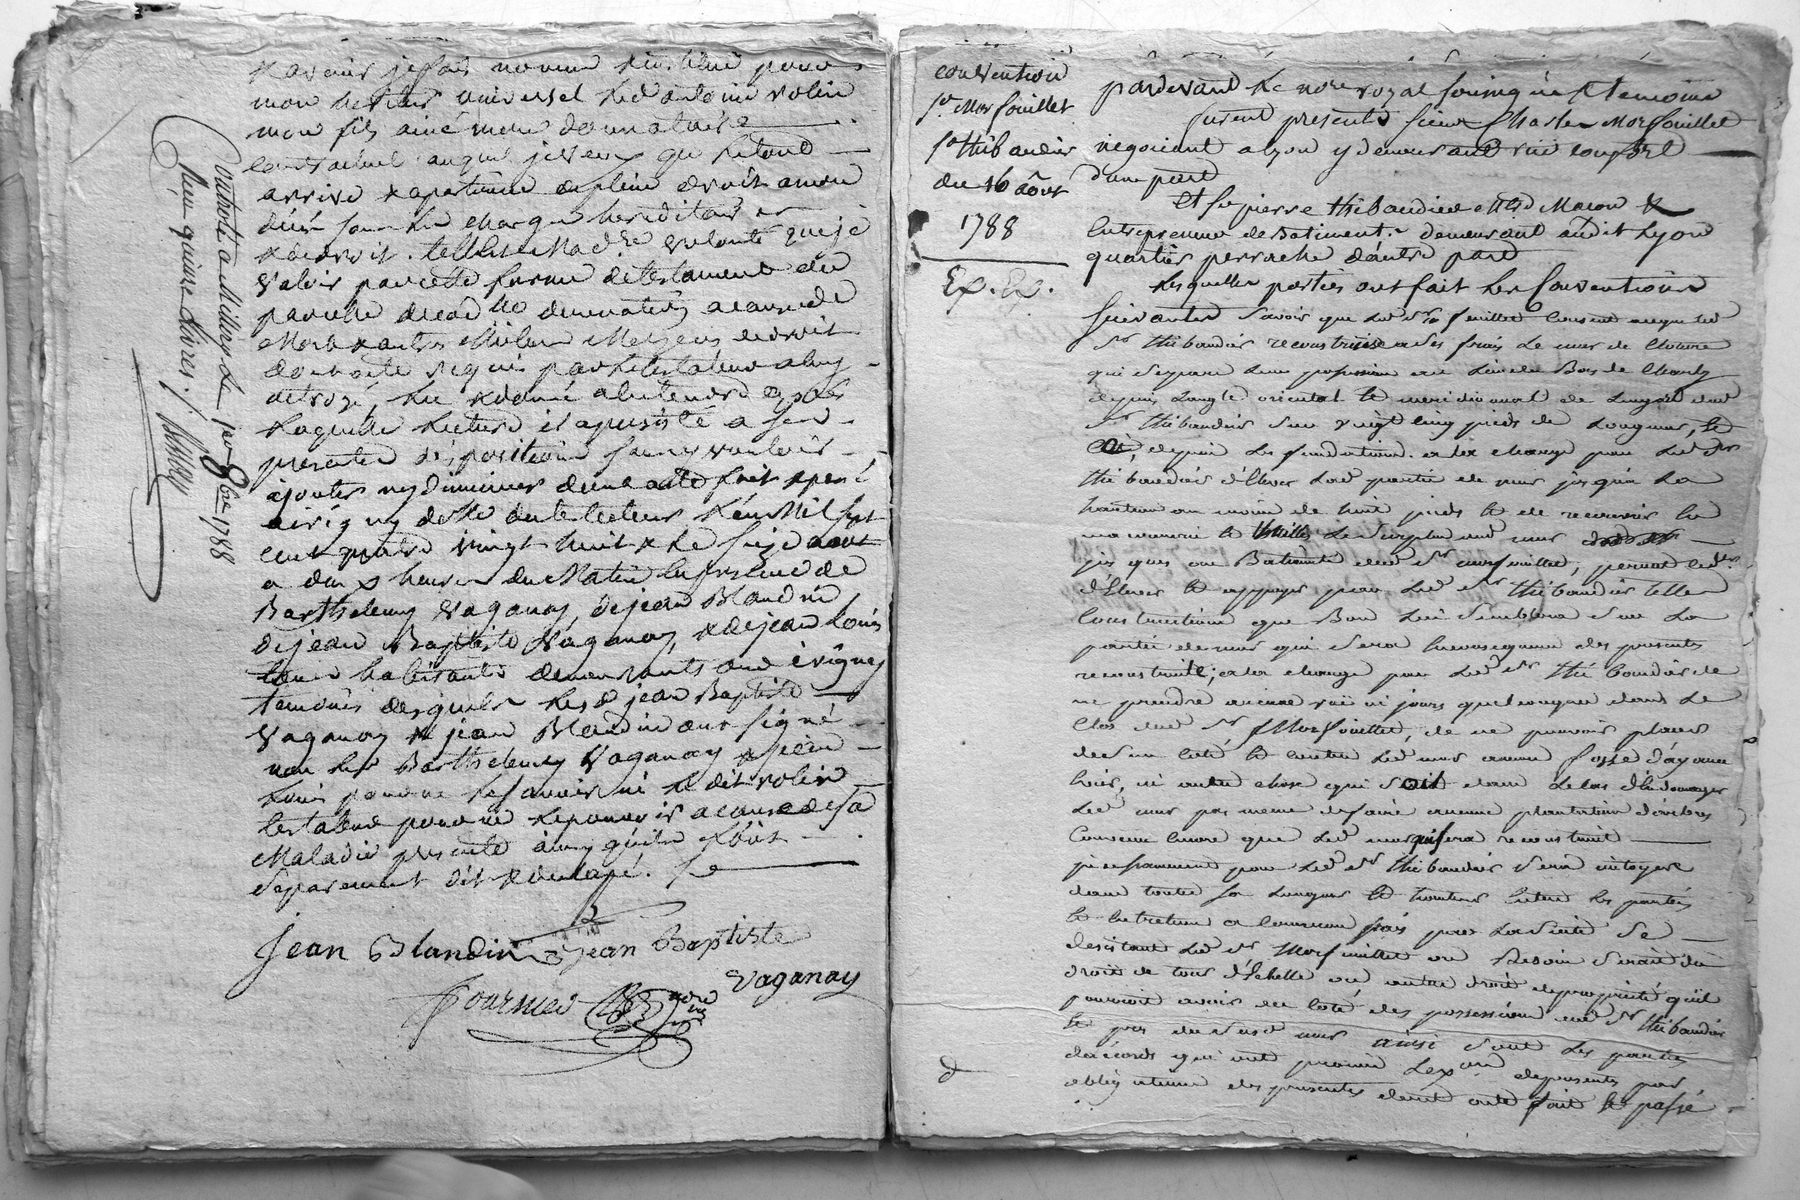 Controlé a Millery Le 1er 8bre 1788
Reçu quinze Livres.
x avenir je fais nomme x institue pour
mon heritier universel led antoine volin
mon fils ainé mon donnataire
contractuel auquel je veux que le tout
arrive x apartienne de plein droit a mon
décès sous la charge hereditaire
x de droit. telle est mad. volonté que je
valoir par cette forme de testament
par celle de codicille donnation a cause de
Mort x autre Meilleur Moyens de droit
dont acte requis par le testateur a luy
octroyé, lu x donné a entendre apres
laquelle Lecture il a persisté a ses
presentes dispositions sans vouloir
ajouter ny diminuer dont acte fait x passé
a irigny de du testateur L'an Mil sept
cent quatre vingt huit x le seize aout
a dix heures du Matin en presence de
Barthelemy Vaganay, de jean Blandin
de jean Baptiste Vaganay, x de jean Louis
tous habitants demeurants aud irigny
temoins desquels lesd jean Baptiste
Vaganay x jean Blandin ont signé
non led Barthelemy Vaganay x jean
Louis pour ne le savoir ni le dit volin
testateur pour ne le pouvoir a cause de sa
Maladie presente ainsy qu'ils l'ont
separement dit x declaré.
Jean Blandin jean Baptiste
Vaganay
Fournier
convention
Sr Morfouillet
Sr thibaudier
du 16 aôut
1788
Ex. Ex.
pardevant Le nore royal soussigné x temoins
furent presents sieur Charles Morfouillet
negociant a Lyon y demeurant rüe confort
d'une part
Et sr pierre thibaudier Mtre Macon &
Entrepreneur de Batiments demeurant audit Lyon
quartier perrache d'autre part
Lesquelles parties ont fait Les Conventions
suivantes Savoir que Led Sr Morfouillet Consent que led
Sr thibaudier reconstruise a ses frais Le mur de cloture
qui separe Leurs possessions au Lieu du Bois de Charly
depuis L'angle oriental et meridional de
Sr thibaudier Sur vingt cinq pieds de Longueur, et
ce, depuis Les fondations. a la charge par Led Sr
thibaudier d'Elever Lad partie de mur jusqu'a La
hauteur au moins de huit pieds et de recouvrir La
maconnerie de thuilles Le surplus dud mur
jusques au Batiment dud Sr morfouillet, permet led Sr
d'Elever et appuyer par Led Sr thibaudier telles
Constructions que Bon Lui Semblera Sur La
partie de mur qui Sera En consequence des presentes
reconstruite; a la charge par Led Sr thibaudier de
ne prendre aucune vuë ni jours quelconques dans Le
Clos dud Sr Morfouillet, de ne pouvoir placer
de son coté et contre Led mur aucune fosse d'aysance
ni autre chose qui soit dans Le cas d'Endomager
Led mur pas meme de faire aucune plantation d'arbres
Convenu Encore que Led mur qui sera reconstruit
par Led Sr thibaudier Sera mitoyen
dans toute sa Longueur et hauteur Entre Les parties
et Entretenu a Commun frais par La Suite Se
desistant Led Sr Morfouillet au Besoin Serait du
droit de tour d'Echelle ou autre droit de proprieté qu'il
pourroit avoir du Coté des possessions dud Sr thibaudier
et pres du Susd mur ainsi Sont Les parties
d'accords qui ont promis L'exon des presentes par
obligations des presentes dont acte fait et passé